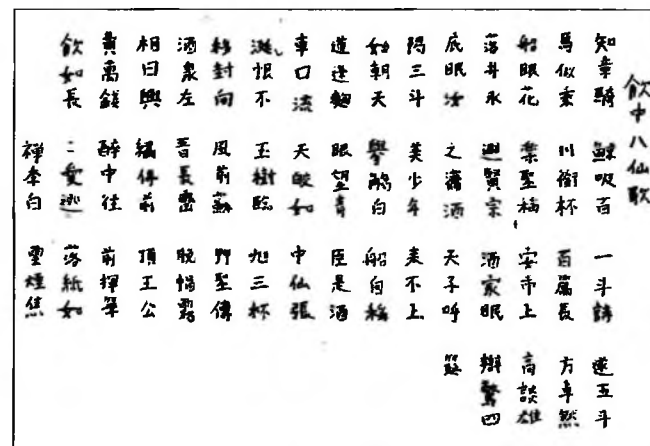 飲中八仙歌
知章騎
馬似乘
船眼花
落井水
底眠汝
陽三斗
始朝天
道逢麴
車口流
涎恨不
移封向
酒泉左
相日興
費萬錢
飲如長
鯨吸百
川銜杯
樂聖稱
避賢宗
之瀟洒
美少年
舉觴白
眼望青
天皎如
玉樹臨
風前蘇
晉長齋
繡佛前
醉中往
二愛逃
禪李白
一斗詩
百篇長
安市上
酒家眠
天子呼
來不上
船自稱
臣是酒
中仙張
旭三杯
草聖傳
脫帽露
頂王公
前揮毫
落紙如
雲煙焦
遂五斗
方卓然
高談雄
辯驚四
筵